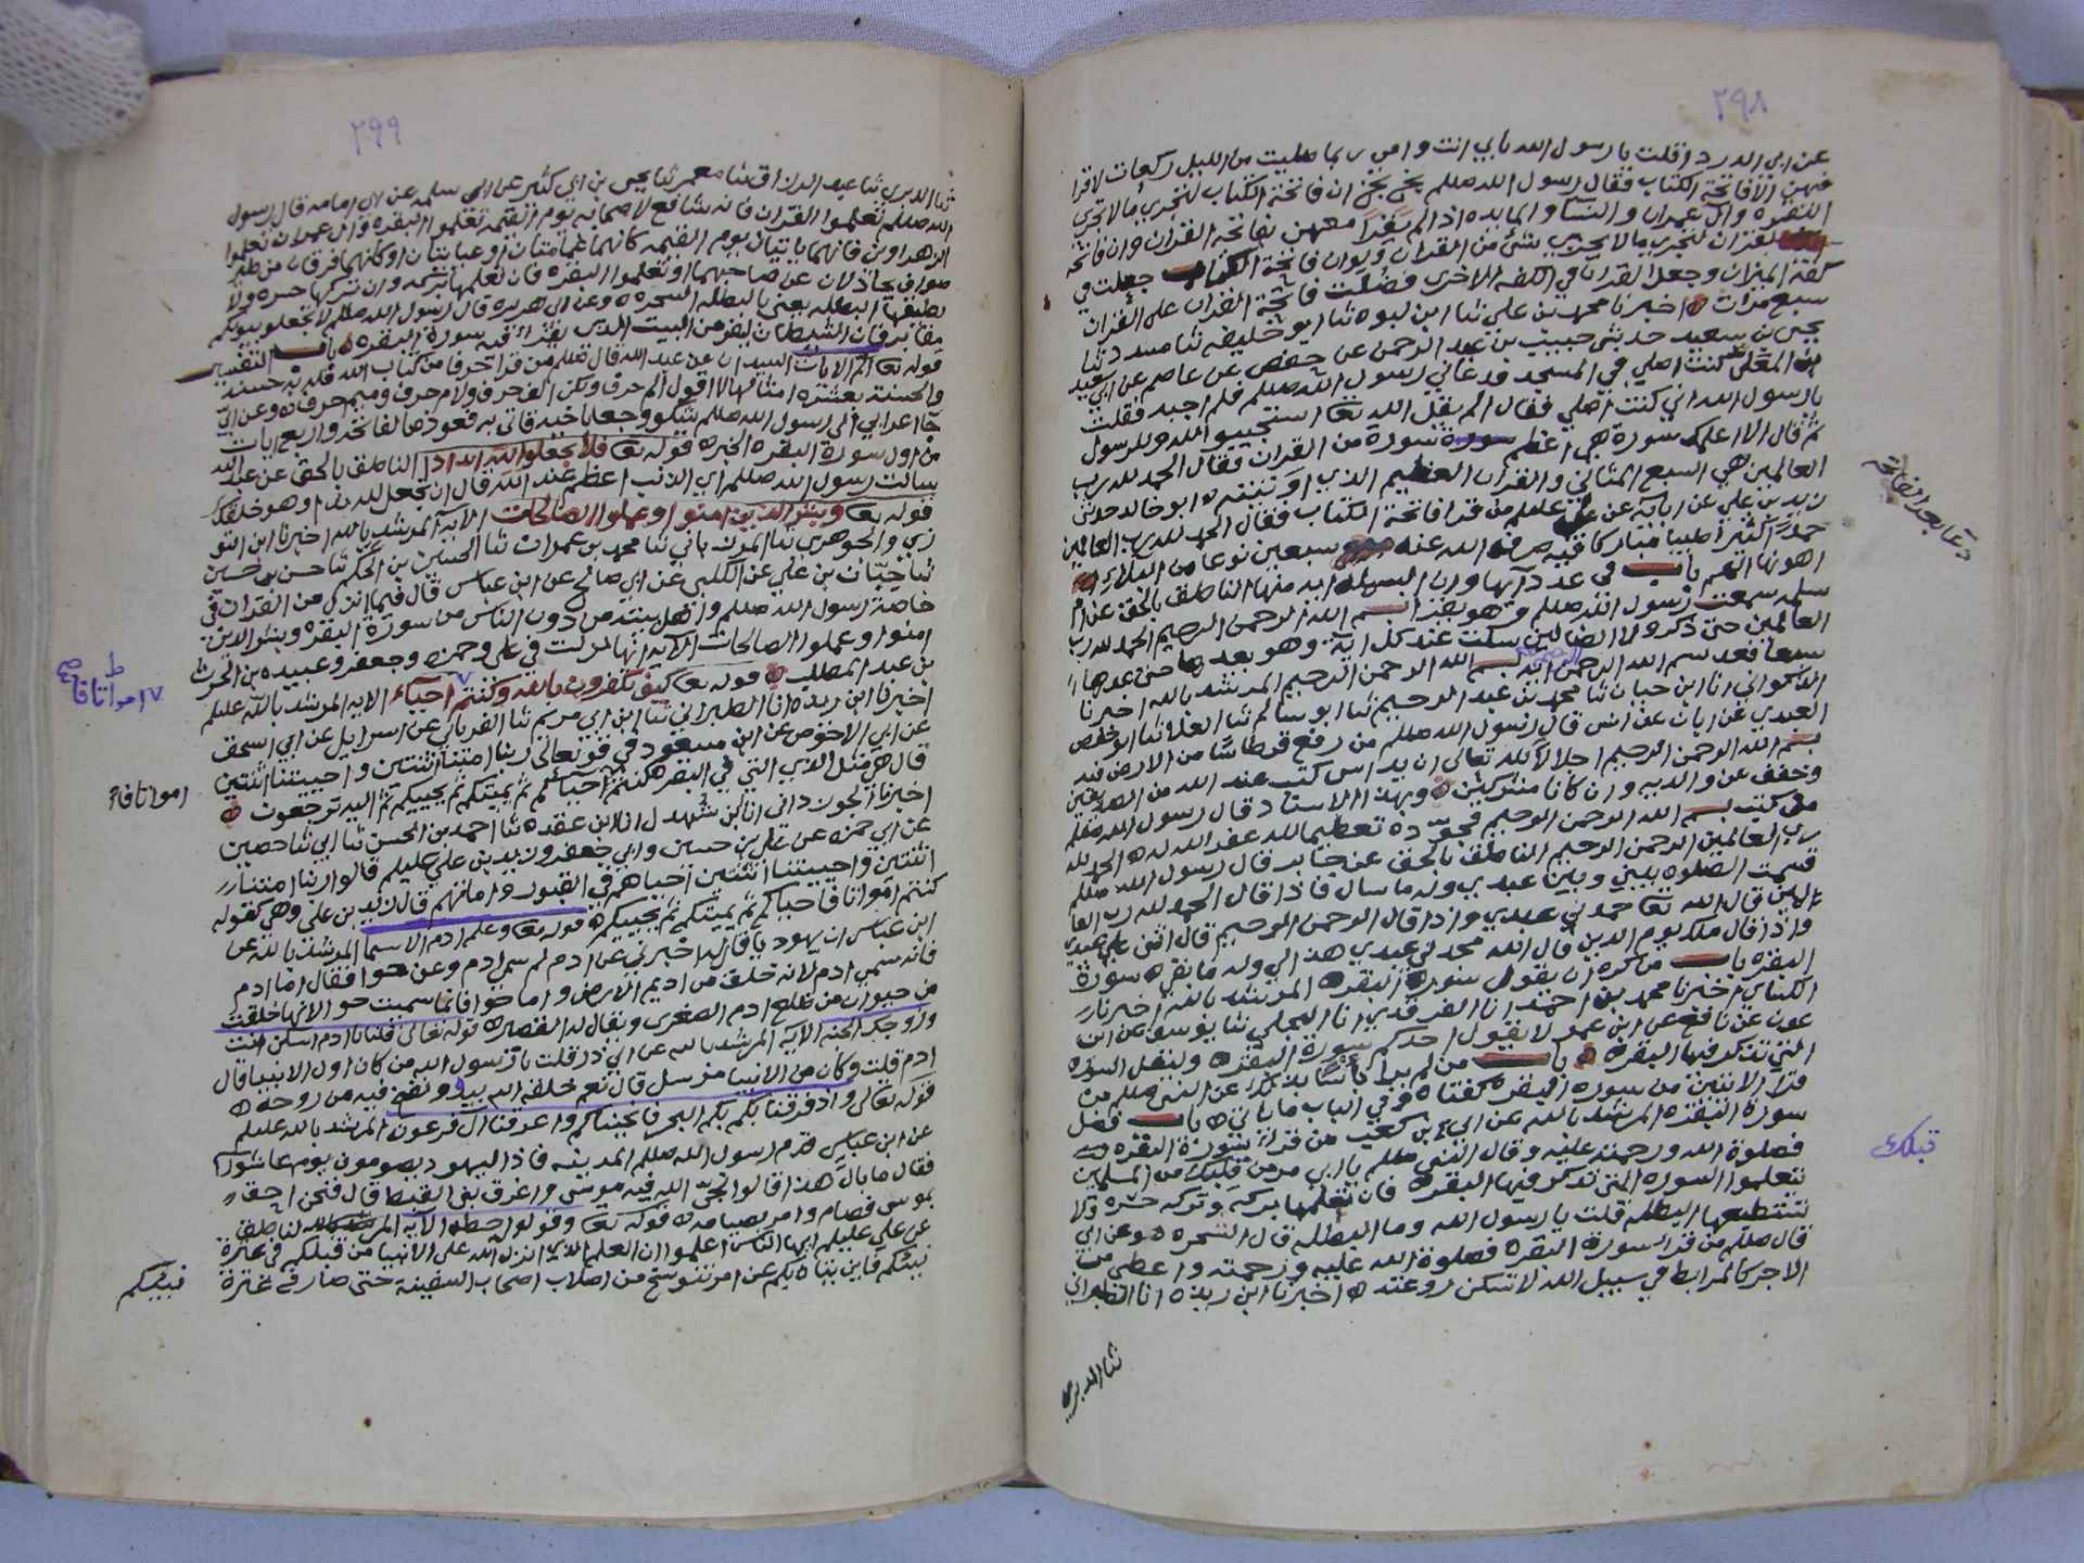 ٢٩٨
عن ابي الدرداء قلت يا رسول الله بابي انت وامي ربما صليت من الليل ركعات لا اقرا
فيهن الا فاتحة الكتاب فقال رسول الله صللم بخ بخ ان فاتحة الكتاب لتجزي مالا تجزي
البقره وال عمران والنسا والمايده اذا لم يقرأ معهن بفاتحة القران وان فاتحة
القران لتجزي مالا يجزي شئ من القران ولو ان فاتحة الكتاب جعلت في
كفة الميزان وجعل القران في الكفه الاخرى فضلت فاتحة القران على القران
سبع مرات اخبرنا محمد بن علي ثنا ابن لبوه ثنا ابو خليفه ثنا مسدد ثنا
يحيى بن سعيد حدثني حبيب بن عبد الرحمن عن حفص عن عاصم عن ابي سعيد
بن المعلى كنت اصلي في المسجد فدعاني رسول الله صللم فلم اجبه فقلت
يا رسول الله اني كنت اصلي فقال الم يقل الله تعا استجيبوا لله وللرسول
ثم قال الا اعلمك سورة هي اعظم سورة من القران فقال الحمد لله رب
العالمين هي السبع المثاني والقران العظيم الذي اوتيته ابو خالد حدثني
زيد بن علي عن ابايه عن علي عليلم من قرا فاتحة الكتاب فقال الحمد لله رب العالمين
حمدا كثيرا طيبا مباركا فيه صرف الله عنه سبعين نوعا من البلاء
اهونها الهم باب في عدد آيها وان البسمله ايه منها الناطق بالحق عن ام
سلمه سمعت رسول الله صللم وهو يقرا بسم الله الرحمن الرحيم الحمد لله رب
العالمين حتى ذكر ولا الضالين سكت عند كل اية وهو يعدها حتى عدها
سبعا فعد بسم الله الرحمن الرحيم ايه بسم الله الرحمن الرحيم المرشد بالله اخبرنا
انا ابن حبان ثنا محمد بن عبد الرحيم ثنا ابو سالم ثنا العلا ثنا ابو حفص
العبدي عن ابان عن انس قال رسول الله صللم من رفع قرطاسا من الارض فيه
بسم الله الرحمن الرحيم اجلالا لله تعالى ان يداس كتب عند الله من الصديقين
وخفف عن والديه وان كانا مشركين وبهذا الاسناد قال رسول الله صللم
من كتب بسم الله الرحمن الرحيم فجوده تعظيما لله غفر الله له الحمد لله
رب العالمين الرحمن الرحيم الناطق بالحق عن جابر قال رسول الله صللم
قسمت الصلوه بيني وبين عبدي وله ما سال فاذا قال الحمد لله رب العا
لمين قال الله تعا حمدني عبدي واذا قال الرحمن الرحيم قال اثنى علي عبدي
واذا قال ملك يوم الدين قال الله مجدني عبدي هذا لي وله ما بقي سورة
البقره باب من كره ان يقول سورة البقره المرشد بالله اخبرنا
الكسائي اخبرنا محمد بن احمد انا الفرقدي انا البجلي ثنا يوسف عن ابن
عون عن نافع عن ابن عمر لا يقول احدكم سورة البقره وليقل السوره
التي تذكر فيها البقره باب من لم ير باسا بذلك عن النبي صللم من
قرا الايتين من سورة البقره كفتاه وفي الباب ما ياتي باب فضل
سورة البقره المرشد بالله عن ابي بن كعب من قرا سورة البقره
فصلوة الله ورحمته عليه وقال النبي صللم يا ابي مر من قبلك من المسلمين
تعلموا السوره التي تذكر فيها البقره فان تعلمها بركه وتركه حسره ولا
تستطيعها البطله قلت يا رسول الله وما البطله قال السحره وعن ابي
قال صللم من قرا سورة البقره فصلوة الله عليه ورحمته واعطي من
الاجر كالمرابط في سبيل الله لا تسكن روعته اخبرنا ابن ريذه انا الطبراني
ثنا الدبري
دعا بعد الفاتحة
قبلك
٢٩٩
ثنا الدبري ثنا عبد الرزاق ثنا معمر ثنا يحيى بن ابي كثير عن ابي سلمه عن ابي امامه قال رسول
الله صللم تعلموا القران فانه شافع لاصحابه يوم القيمه تعلموا البقره وال عمران تعلموا
الزهراوين فانهما ياتيان يوم القيمه كانهما غمامتان او غيابتان او كانهما فرقان من طير
صواف يحاجان عن صاحبهما وتعلموا البقره فان تعلمها بركه وان تركها حسره ولا
تطيقها البطله يعني بالبطله السحره وعن ابي هريره قال رسول الله صللم لا تجعلوا بيوتكم
مقابر فان الشيطان ليفر من البيت الذي يقرا فيه سورة البقره باب التفسير
قوله تعا الم الايات السيدان عن عبد الله قال صللم من قرا حرفا من كتاب الله فله به حسنه
والحسنة بعشره امثالها لا اقول الم حرف ولكن الف حرف ولام حرف وميم حرف وعن ابي
جا اعرابي الى رسول الله صللم شكو وجعا باخيه فاتي به فعوذه بالفاتحه واربع ايات
من اول سورة البقره الخبر قوله تعا فلا تجعلوا لله اندادا الناطق بالحق عن عبد الله
سالت رسول الله صللم اي الذنب اعظم عند الله قال ان تجعل لله ندا وهو خلقك
قوله تعا وبشر الذين امنوا وعملوا الصالحات الآيه المرشد بالله اخبرنا ابن التو
زي والجوهري ثنا المرزباني ثنا محمد بن عمران ثنا الحسين بن الحكم ثنا حسن بن حسين
ثنا حبان بن علي عن الكلبي عن ابي صالح عن ابن عباس قال فيما انزل من القران في
خاصة رسول الله صللم واهل بيته من دون الناس من سورة البقره وبشر الذين
امنوا وعملوا الصالحات الآيه انها نزلت في علي وحمزه وجعفر وعبيده بن الحرث
بن عبد المطلب قوله تعا كيف تكفرون بالله وكنتم احياء الآيه المرشد بالله عليلم
اخبرنا ابن ريذه انا الطبراني ثنا ابن ابي مريم ثنا الفريابي عن اسرايل عن ابي اسحق
عن ابي الاحوص عن ابن مسعود في قوله تعالى ربنا امتنا اثنتين واحييتنا اثنتين
قال هي مثل الاي التي في البقره كنتم احياكم ثم يميتكم ثم يحييكم ثم اليه ترجعون
اخبرنا الجوزداني انا ابن شهدل انا ابن عقده ثنا احمد بن الحسن ثنا ابي ثنا حصين
عن ابي حمزه عن علي بن حسين وابي جعفر وزيد بن علي عليلم قالوا ربنا امتنا
اثنتين واحييتنا اثنتين احياهم في القبور واماتهم قال زيد بن علي وهي كقوله
كنتم امواتا فاحياكم ثم يميتكم ثم يحييكم قوله تعا وعلم ادم الاسما المرشد بالله عن
ابن عباس ان يهوديا قال اخبرني عن ادم لم سمي ادم وعن حوا فقال اما ادم
فانه سمي ادم لانه خلق من اديم الارض واما حوا فانما سميت حوا لانها خلقت
من حيوان من ضلع ادم الصغرى ويقال له القصيره قوله تعالى قلنا يا ادم اسكن انت
وزوجك الجنه الآيه المرشد بالله عن ابي ذر قلت يا رسول الله من كان اول الانبيا قال
ادم قلت وكان من الانبيا مرسل قال نعم خلقه الله بيده ونفخ فيه من روحه
قوله تعالى واذ فرقنا بكم البحر فانجيناكم واغرقنا آل فرعون المرشد بالله عليلم
عن ابن عباس قدم رسول الله صللم المدينه فاذا اليهود يصومون يوم عاشورا
فقال ما بال هذا قالوا نجى الله فيه موسى واغرق بني القبط قال فنحن احق
بموسى فصام وامر بصيامه قوله تعا وقولوا حطه الآيه الناطق
عن علي عليلم ايها الناس اعلموا ان العلم الذي انزله الله على الانبيا من قبلكم في عترة
نبيكم فاين يتاه بكم عن امر تنوسخ من اصلاب اصحاب السفينة حتى صار في عترة
امواتا فا صح
امواتا فا
نبيكم